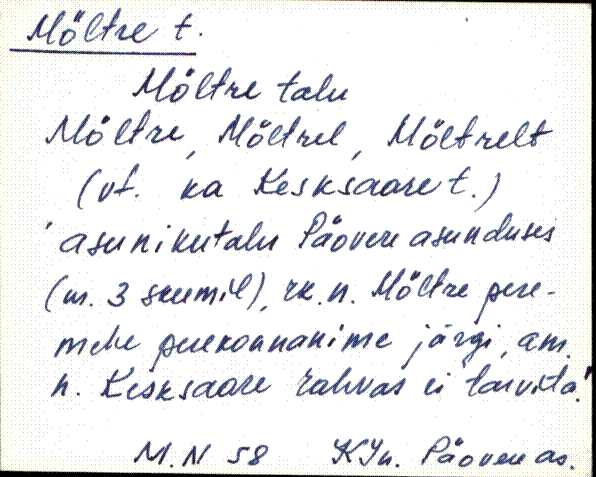 Möltre t.
Möltre talu
Möltre, Möltrel, Möltrelt
(vt. ka Kesksaare t.)
asunikutalu Päovere asunduses
(nr. 3 skeemil), rk. n. Möltre pere-
mehe perekonnanime järgi, am.
n. Kesksaare rahvas ei tarvita!
M.N 58 KJn. Päovere as.